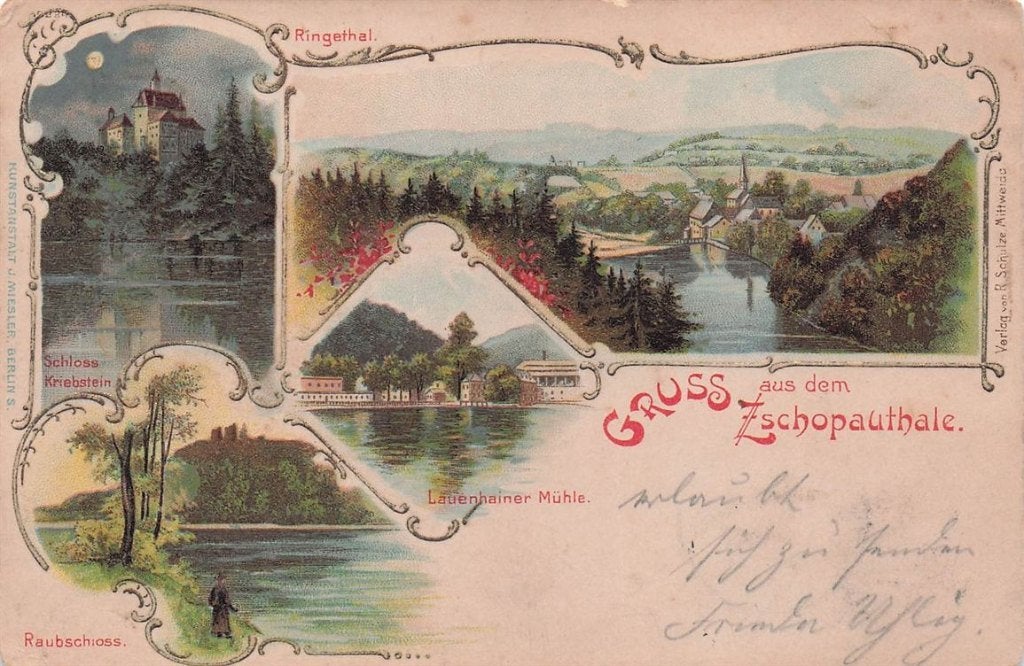 Ringethal.
KUNSTANSTALT J. MIESLER, BERLIN S.
Verlag von R. Schulze Mittweida
Schloss
Kriebstein
GRUSS aus dem
Zschopauthale.
Lauenhainer Mühle.
erlaubt
sich zu senden
Frieda Uhlig.
Raubschloss.